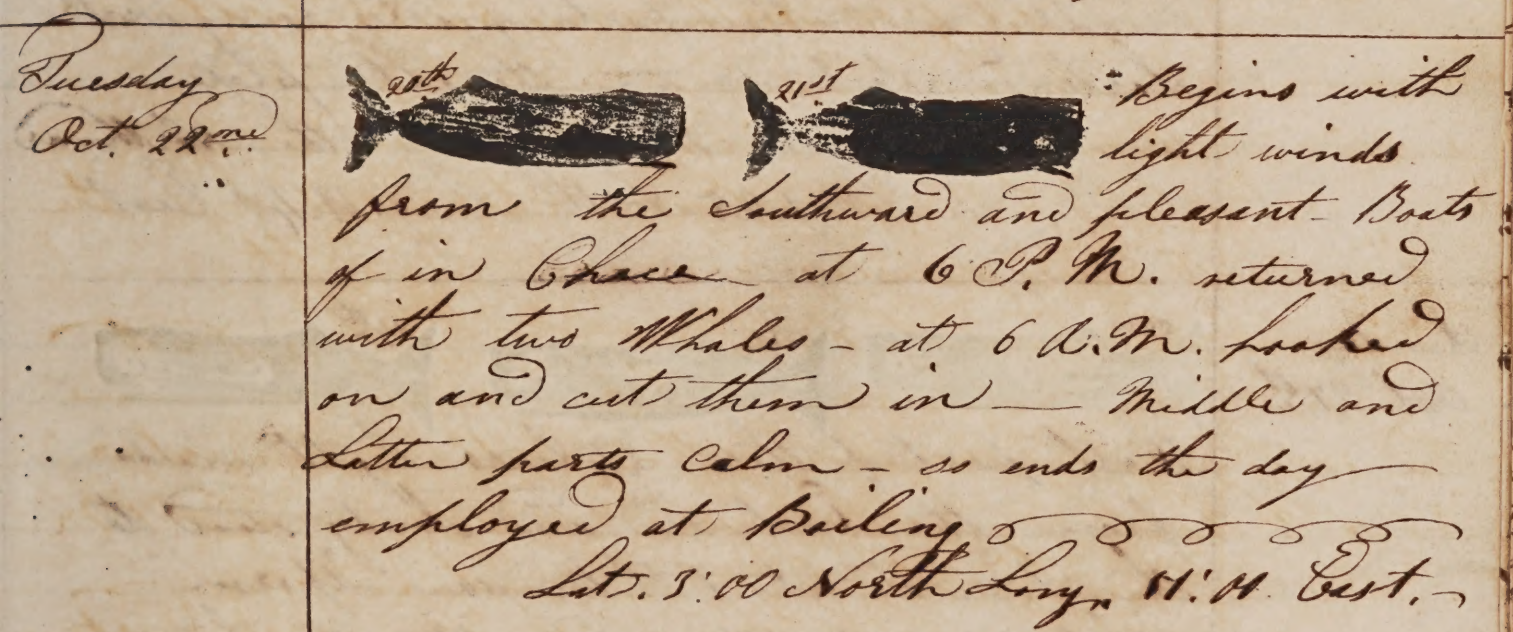 Tuesday
Oct. 22nd
20th 21st Begins with
light winds
from the Southward and pleasant - Boats
of in Chace - at 6 P.M. returned
with two Whales - at 6 A.M. hooked
on and cut them in — Middle and
Latter parts Calm - so ends the day
employed at Boiling
Lat. 3:00 North Long. East. -